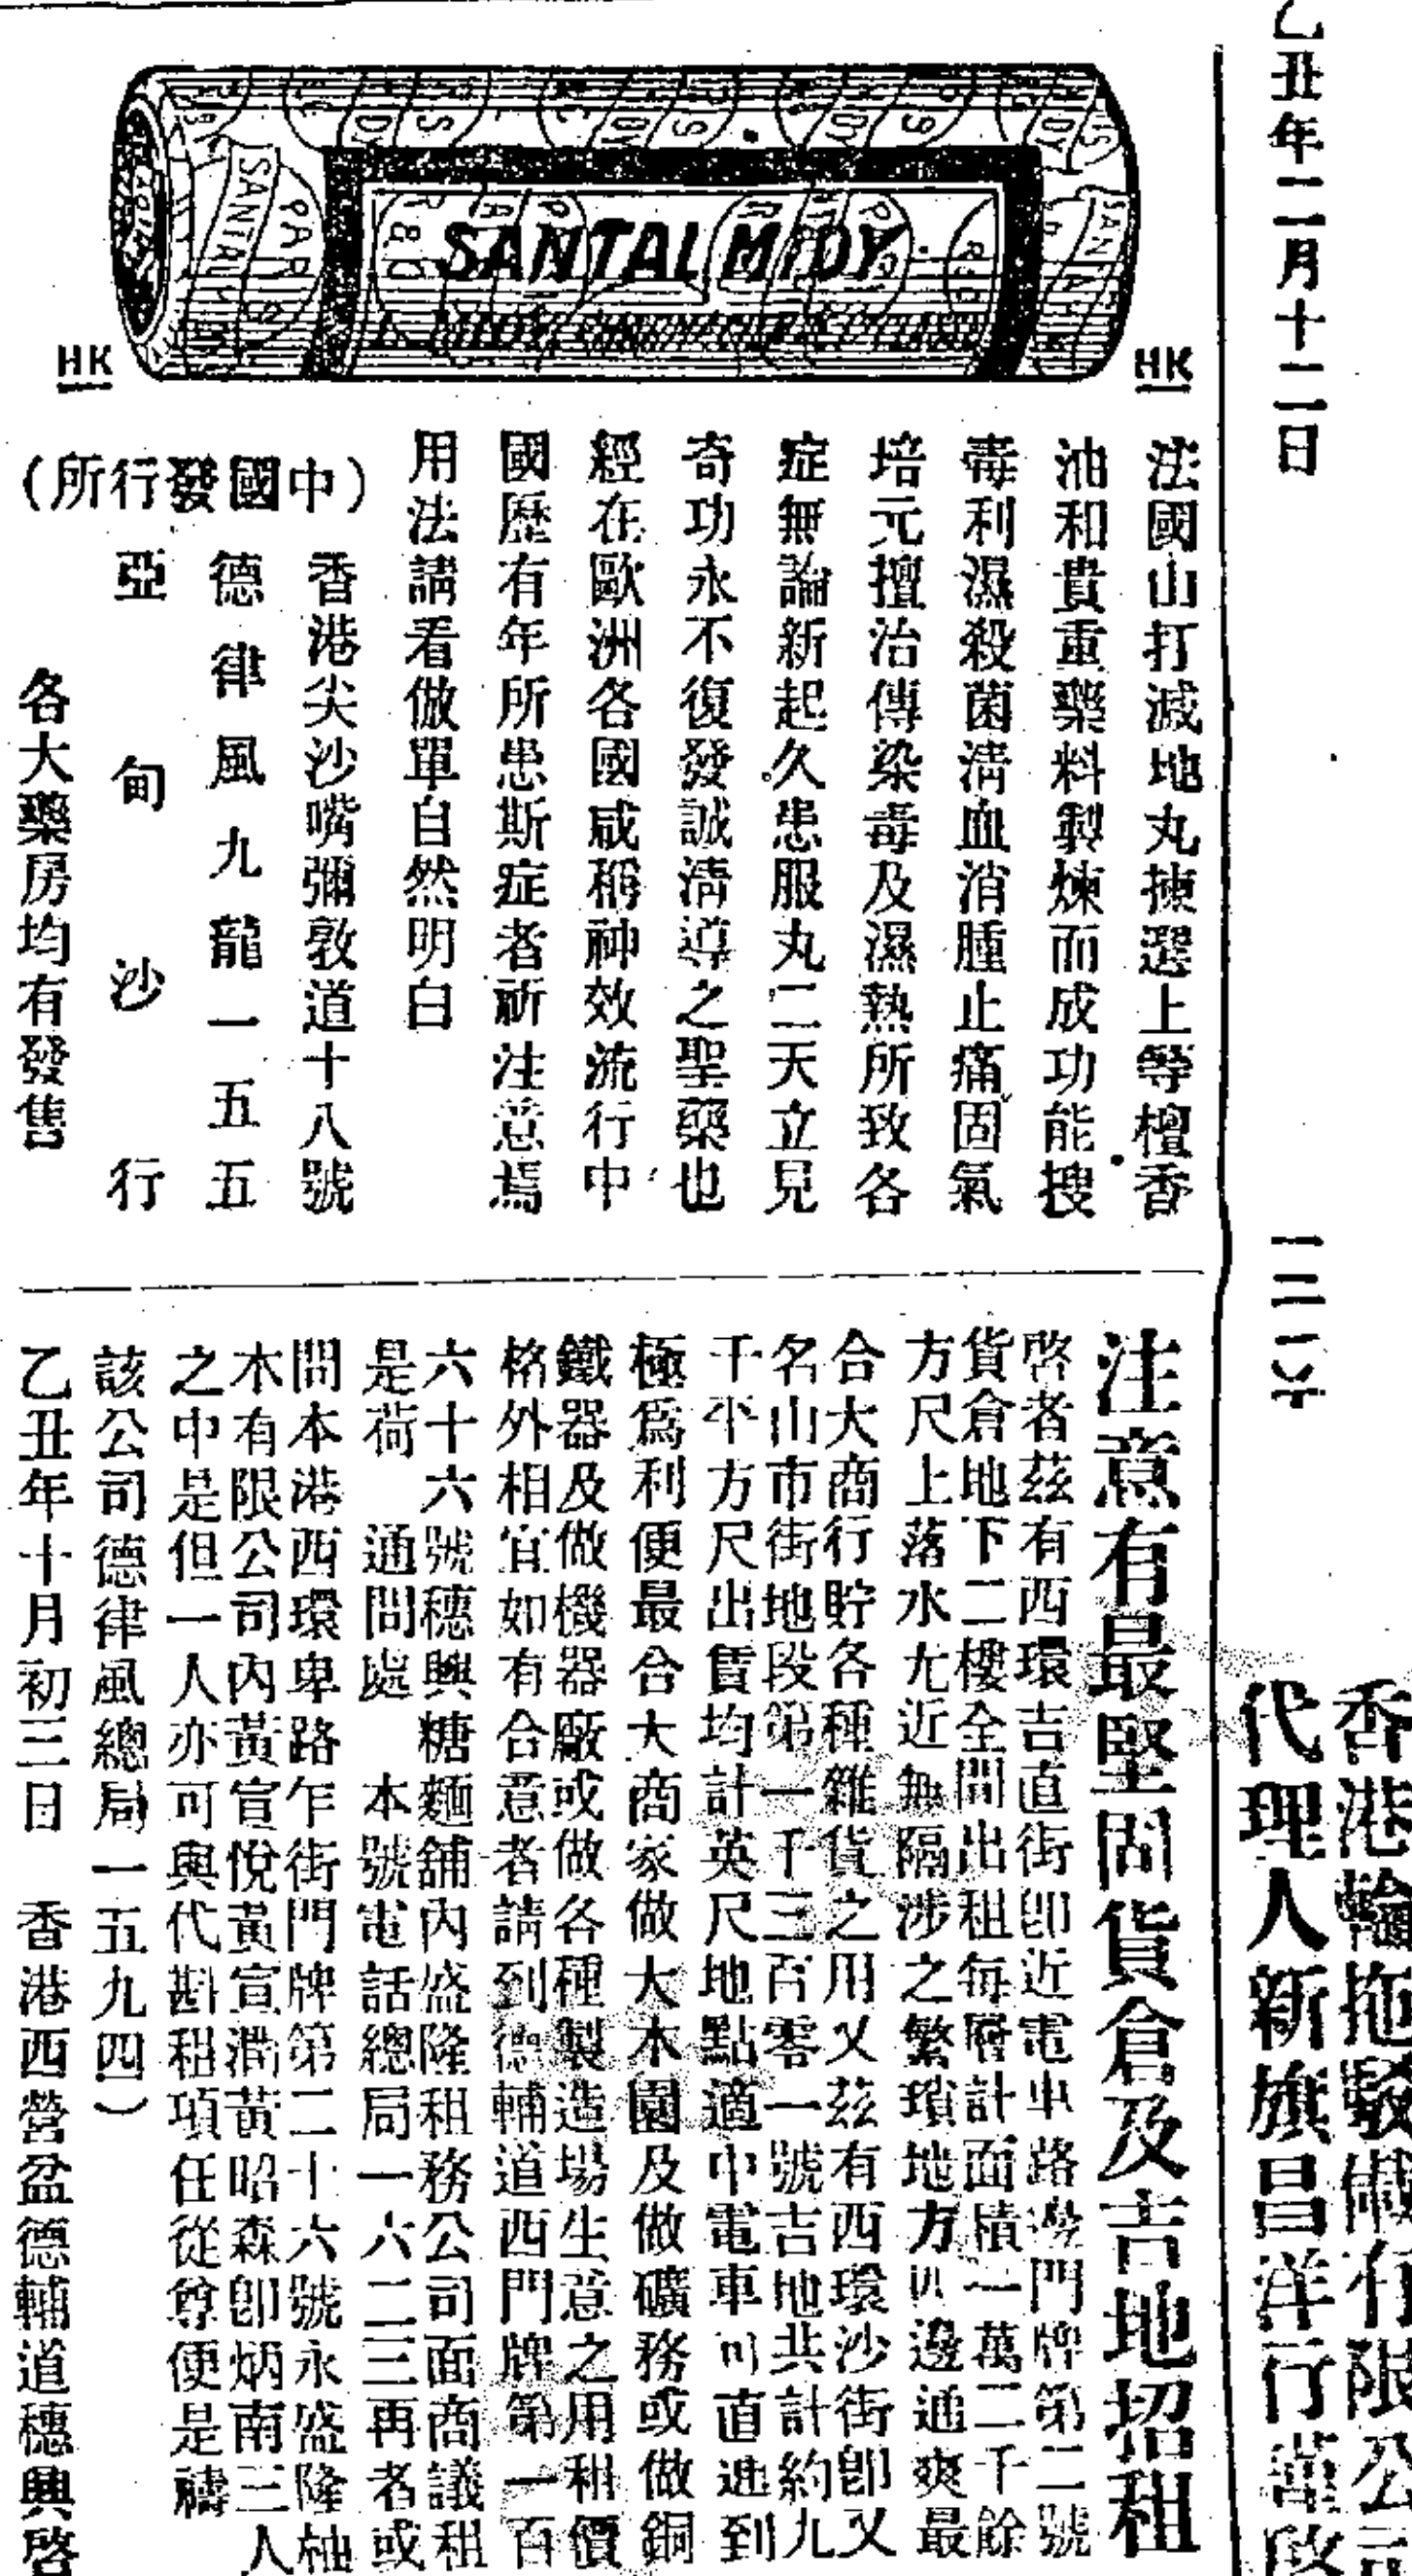 乙丑年二月十二日
香港輪拖駁儎有限公
代理人新旗昌洋行謹啟
SANTAL MIDY
HK
HK
法國山打滅地丸揀選上等檀香
油和貴重藥料製煉而成功能搜
毒利濕殺菌清血消腫止痛固氣
培元擅治傳染毒及濕熱所致各
症無論新起久患服丸二天立見
奇功永不復發誠清導之聖藥也
經在歐洲各國咸稱神效流行中
國歷有年所患斯症者祈注意焉
用法請看倣單自然明白
(中國發行所)
香港尖沙嘴彌敦道十八號
德律風九龍一五五
亞甸沙行
各大藥房均有發售
注意有最堅固貨倉及吉地招租
啓者茲有西環吉直街卽近電車路邊門牌第二號
貨倉地下二樓全間出租每層計面積一萬二千餘
方尺上落水尤近無隔涉之繁瑣地方四邊通爽最
合大商行貯各種雜貨之用又茲有西環沙街卽又
名山市街地段第一千三百零一號吉地共計約九
千平方尺出賃均計英尺地點適中電車可直進到
極爲利便最合大商家做大木園及做礦務或做銅
鐵器及做機器廠或做各種製造場生意之用租價
格外相宜如有合意者請到德輔道西門牌第一百
六十六號穗興糖麵舖內盛隆租務公司面商議租
是荷 通問處 本號電話總局一六二三再者或
問本港西環卑路乍街門牌第二十六號永盛隆柚
木有限公司內黃宣悅黃宣潤黃昭森卽炳南三人
之中是但一人亦可與代斟租項任從尊便是禱
該公司德律風總局一五九四)
乙丑年十月初三日 香港西營盆德輔道穗興啓